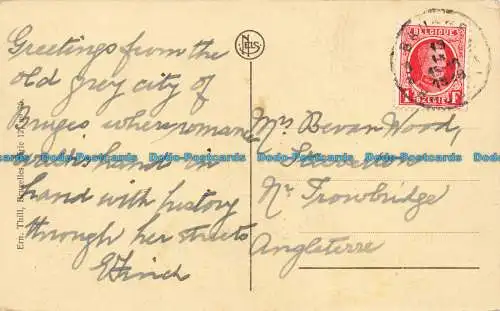 Greetings from the
old grey city of
Bruges where romance
walks hand in
hand with history
through her streets
E Finch
Mrs Bevan Wood,
Nr Trowbridge
Angleterre
BELGIQUE
1 F
BELGIË
NELS
Ern. Thill, Bruxelles
Dodo-Postcards Dodo-Postcards Dodo-Postcards Dodo-Postcards Dodo-Postcards Dodo-Postcards